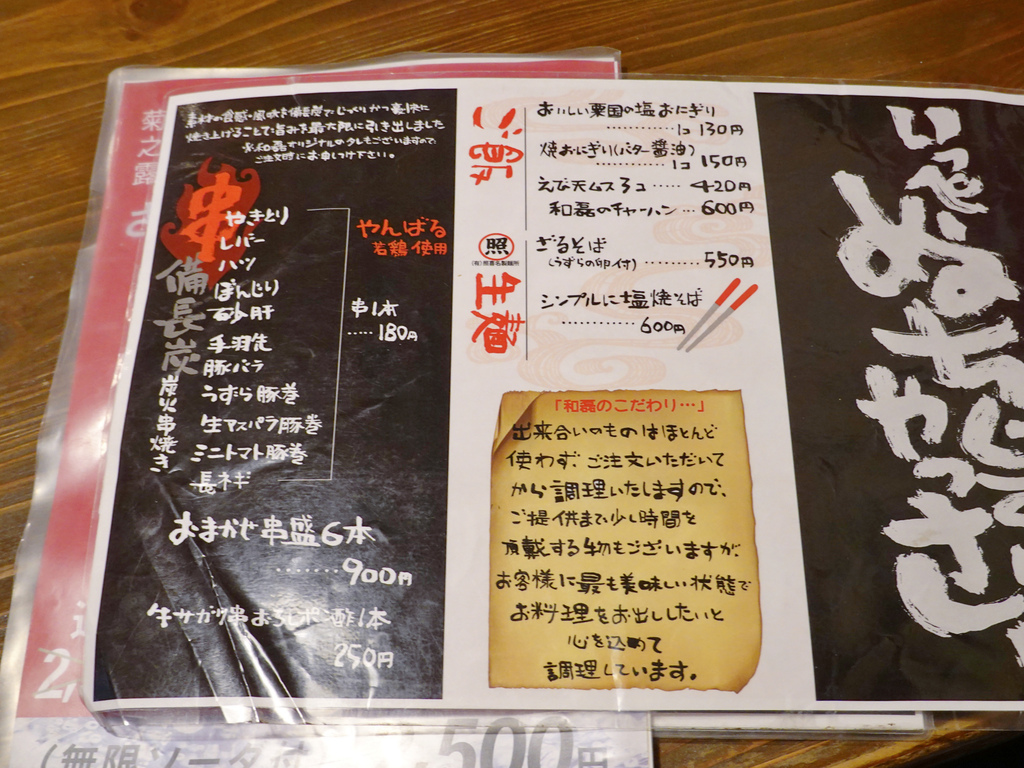 素材の食感・風味を備長炭でじっくりかつ豪快に
焼き上げることで旨みを最大限に引き出しました
※和磊オリジナルのタレもございますので
ご注文時にお申しつけ下さい。
串
備長炭
炭火串焼き
やきとり
レバー
ハツ
ぼんじり
砂肝
手羽先
豚バラ
うずら豚巻
生アスパラ豚巻
ミニトマト豚巻
長ネギ
やんばる
若鶏使用
串1本
‥‥‥180円
おまかせ串盛6本
‥‥‥‥900円
牛サガリ串おろしポン酢1本
250円
ご飯
おいしい粟国の塩おにぎり
‥‥‥‥‥1コ 130円
焼おにぎり(バター醤油)
‥‥‥‥‥1コ 150円
えび天ムス3コ‥‥‥420円
和磊のチャーハン‥‥600円
照
生麺
ざるそば
(うずらの卵付)‥‥‥‥‥550円
シンプルに塩焼そば
‥‥‥‥‥‥600円
「和磊のこだわり…」
出来合いのものはほとんど
使わず、ご注文いただいて
から調理いたしますので、
ご提供まで少し時間を
頂戴する物もございますが、
お客様に最も美味しい状態で
お料理をお出ししたいと
心を込めて
調理しています。
いっぺー
菊之露
2,
(無限ソーダ付
500円